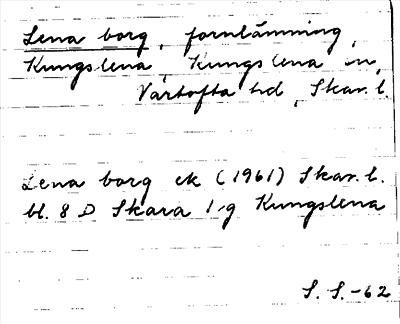 Lena borg, fornlämning,
Kungslena, Kungslena sn,
Vartofta hd, Skar. l.
Lena borg ek (1961) Skar. l.
bl. 8 D Skara 1 g Kungslena
S. S.-62